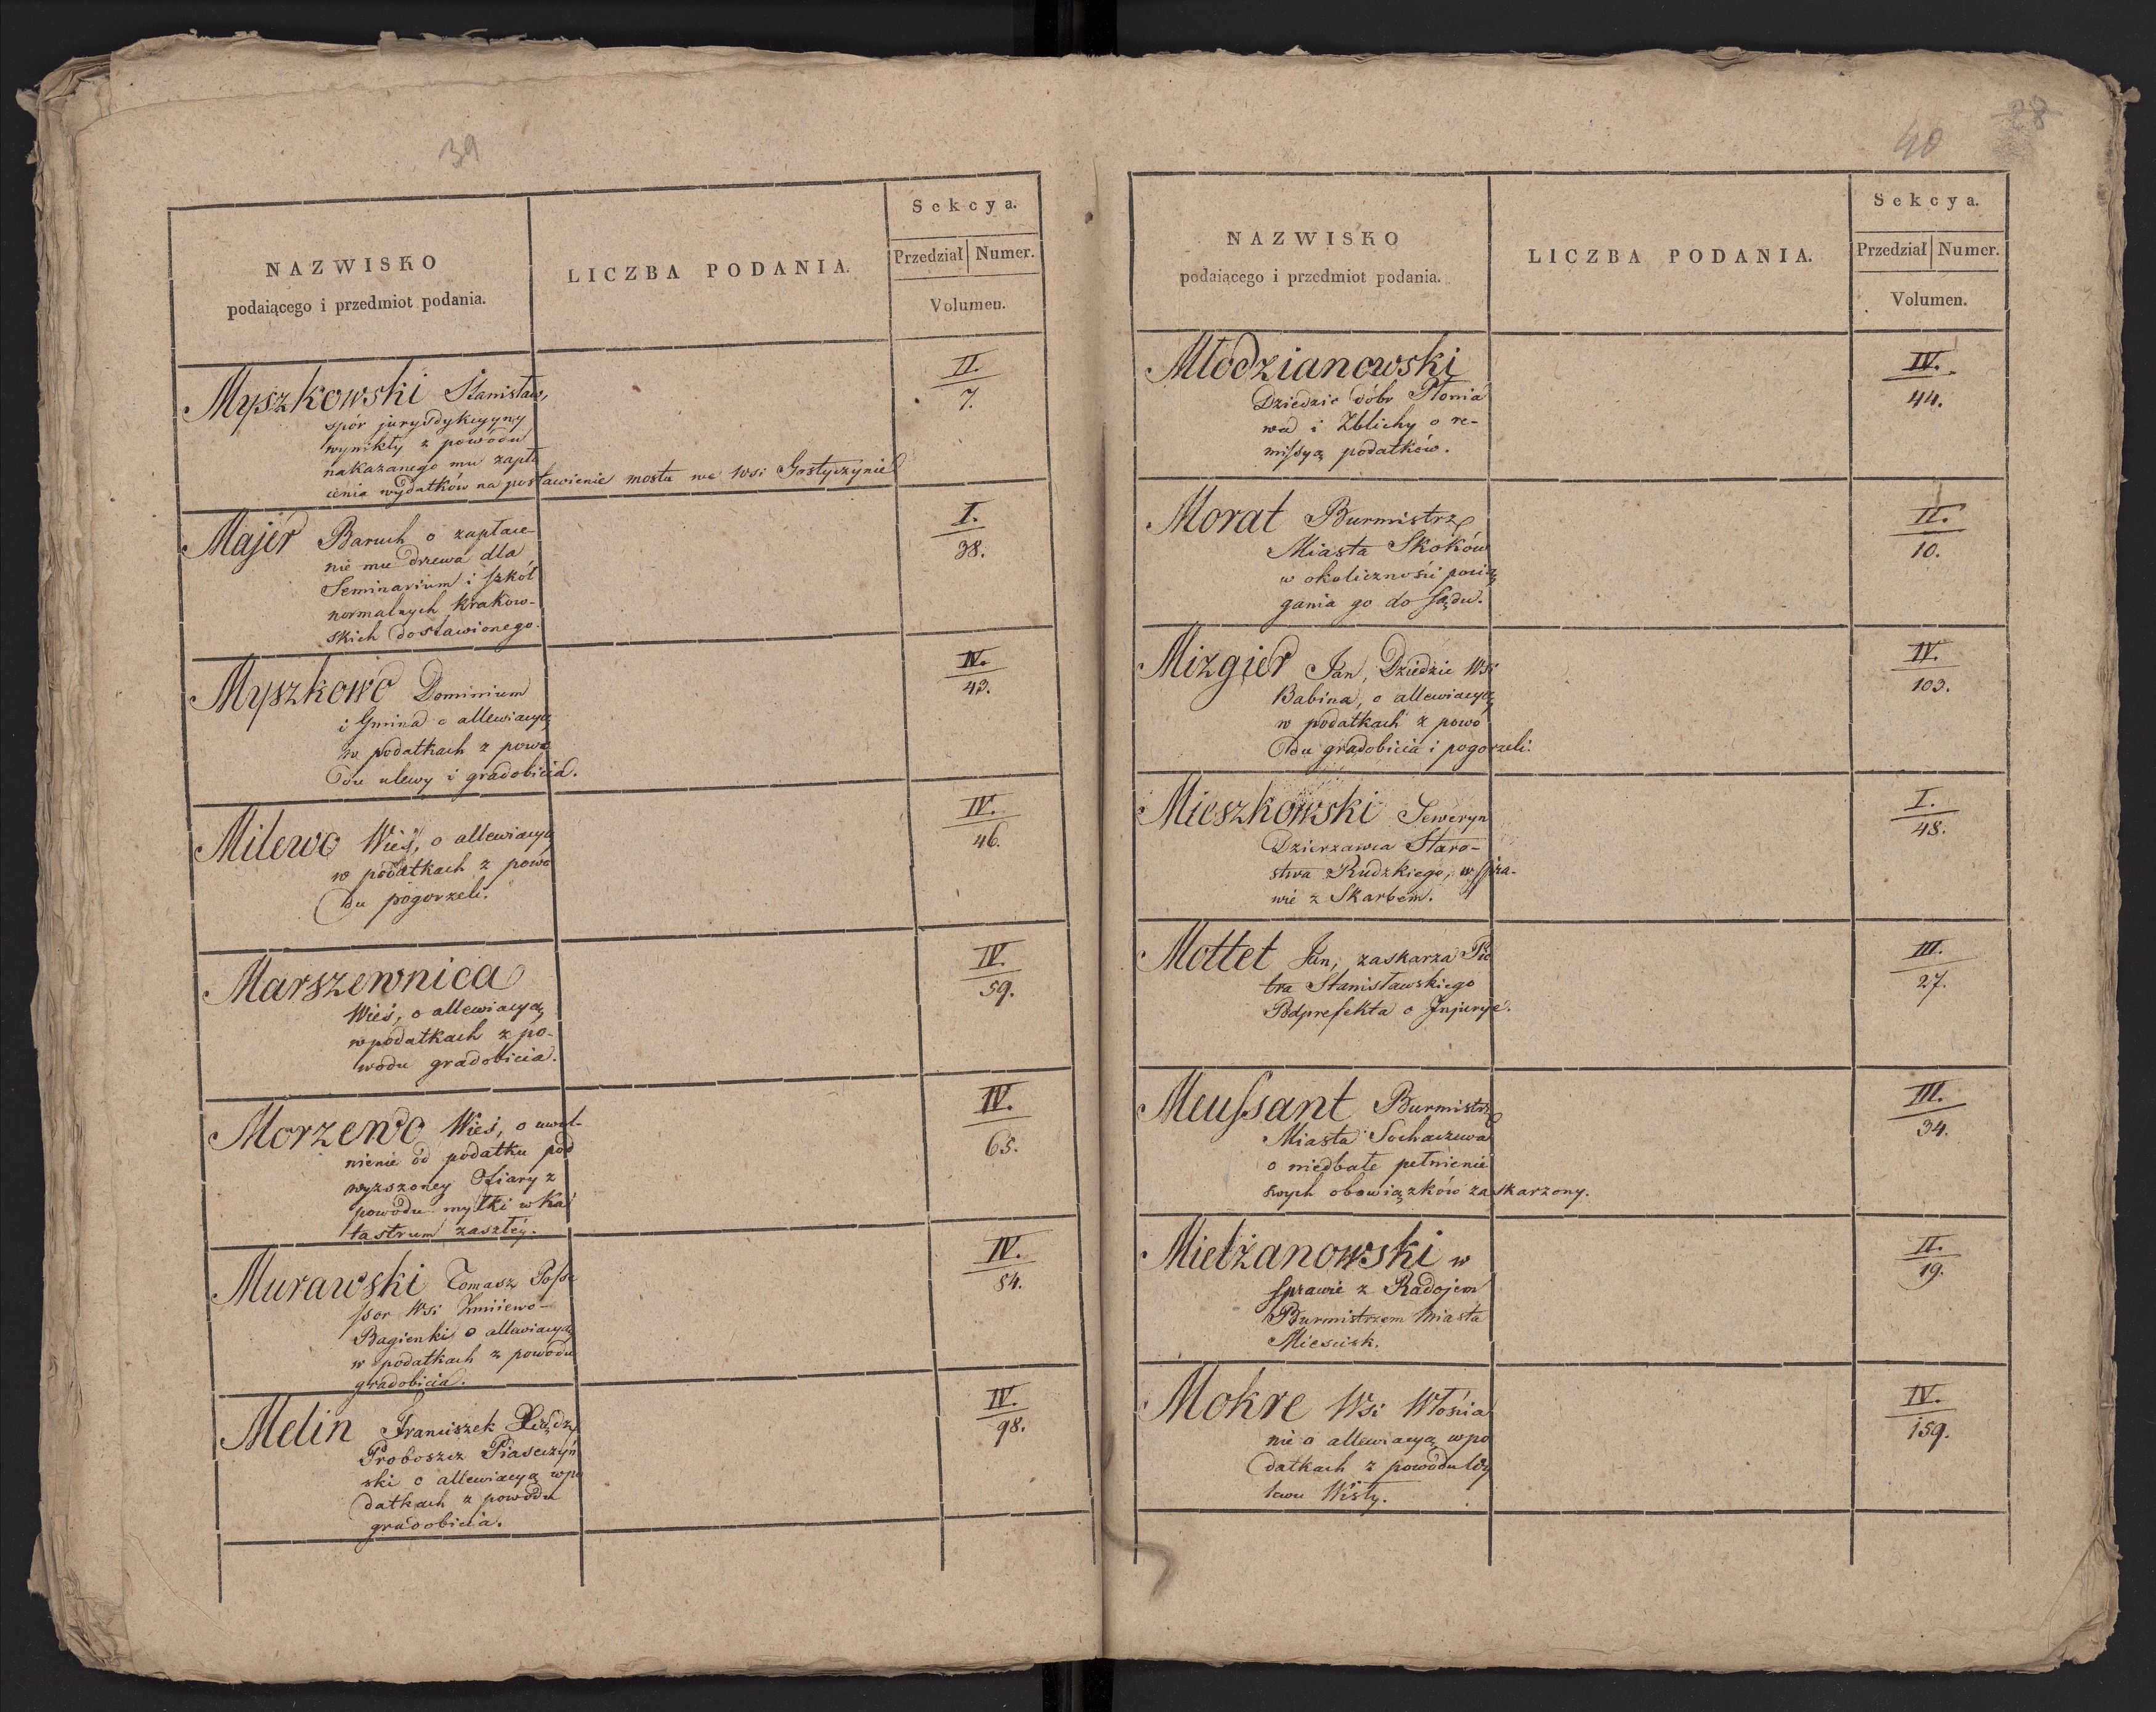 39
NAZWISKO
podaiącego i przedmiot podania.
LICZBA PODANIA.
Sekcya.
Przedział Numer.
Volumen.
Myszkowski Stanisław,
spór jurysdykcyyny
wynikły z powodu
nakazanego mu zapła
cenia wydatków na postawienie mostu we Wsi Gostyczynie
II.
7.
Majer Baruch o zapłace-
nie mu drzewa dla
Seminarium i szkół
normalnych Krakow-
skich dostawionego.
I.
38.
Myszkowo Dominium
i Gmina o allewiacyą
w podatkach z powo
du ulewy i gradobicia.
IV.
43.
Milewo Wieś, o allewiacyą
w podatkach z powo
du pogorzeli.
IV.
46.
Marszewnica
Wieś, o allewiacyą
w podatkach z po-
wodu gradobicia.
IV.
59.
Morzewo Wieś, o uwol-
nienie od podatku pod
wyższoney Ofiary z
powodu myłki w Ka
tastrum zaszłéy.
IV.
65.
Murawski Tomasz Posse
ssor Wsi Żmiiewo-
Bagienki o allewiacyą
w podatkach z powodu
gradobicia.
IV.
84.
Melin Franciszek Xiądz
Proboszcz Piasczyń
ski o allewiacyą w po
datkach z powodu
gradobicia.
IV.
98.
28
40
NAZWISKO
podaiącego i przedmiot podania.
LICZBA PODANIA.
Sekcya.
Przedział Numer.
Volumen.
Młodzianowski
Dziedzic dóbr Płonia
wa i Zblichy o re-
missyą podatków.
IV.
44.
Morat Burmistrz
Miasta Skoków
w okoliczności pocią
gania go do sądu.
II.
10.
Mizgier Jan, Dziedzic Wsi
Babina, o allewiacyą
w podatkach z powo
du gradobicia i pogorzeli.
IV.
103.
Mieszkowski Seweryn
Dzierzawca Staro-
stwa Rudzkiego, w spra-
wie z Skarbem.
I.
48.
Mottet Jan, zaskarza Pio
tra Stanisławskiego
Podprefekta o Injurye.
III.
27.
Meussant Burmistrz
Miasta Sochaczewa
o niedbałe pełnienie
swych obowiązków zaskarzony.
III.
34.
Mielżanowski w
sprawie z Radojem
Burmistrzem Miasta
Miescisk.
II.
19.
Mokre Wsi Włościa
nie o allewiacyą w po
datkach z powodu Wy
lewu Wisły.
IV.
159.